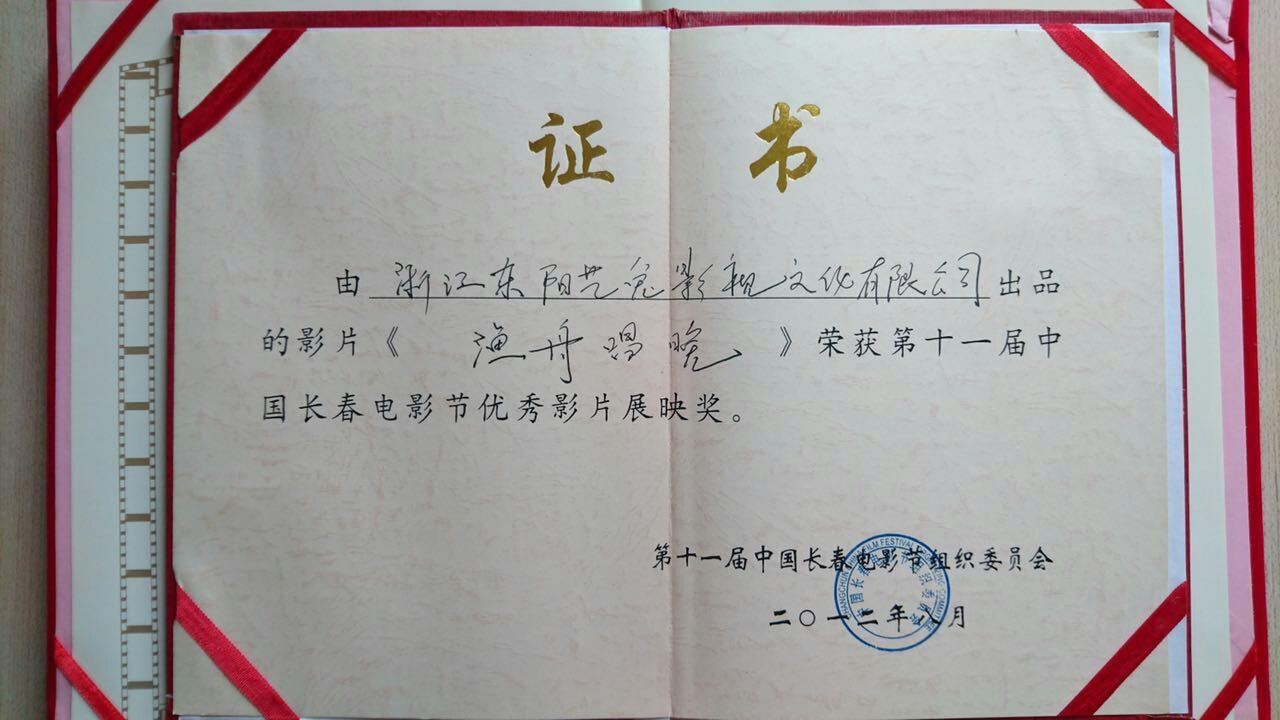 证 书
由 浙江东阳艺兔影视文化有限公司 出品
的影片《 渔舟唱晚 》荣获第十一届中
国长春电影节优秀影片展映奖。
第十一届中国长春电影节组织委员会
二〇一二年八月